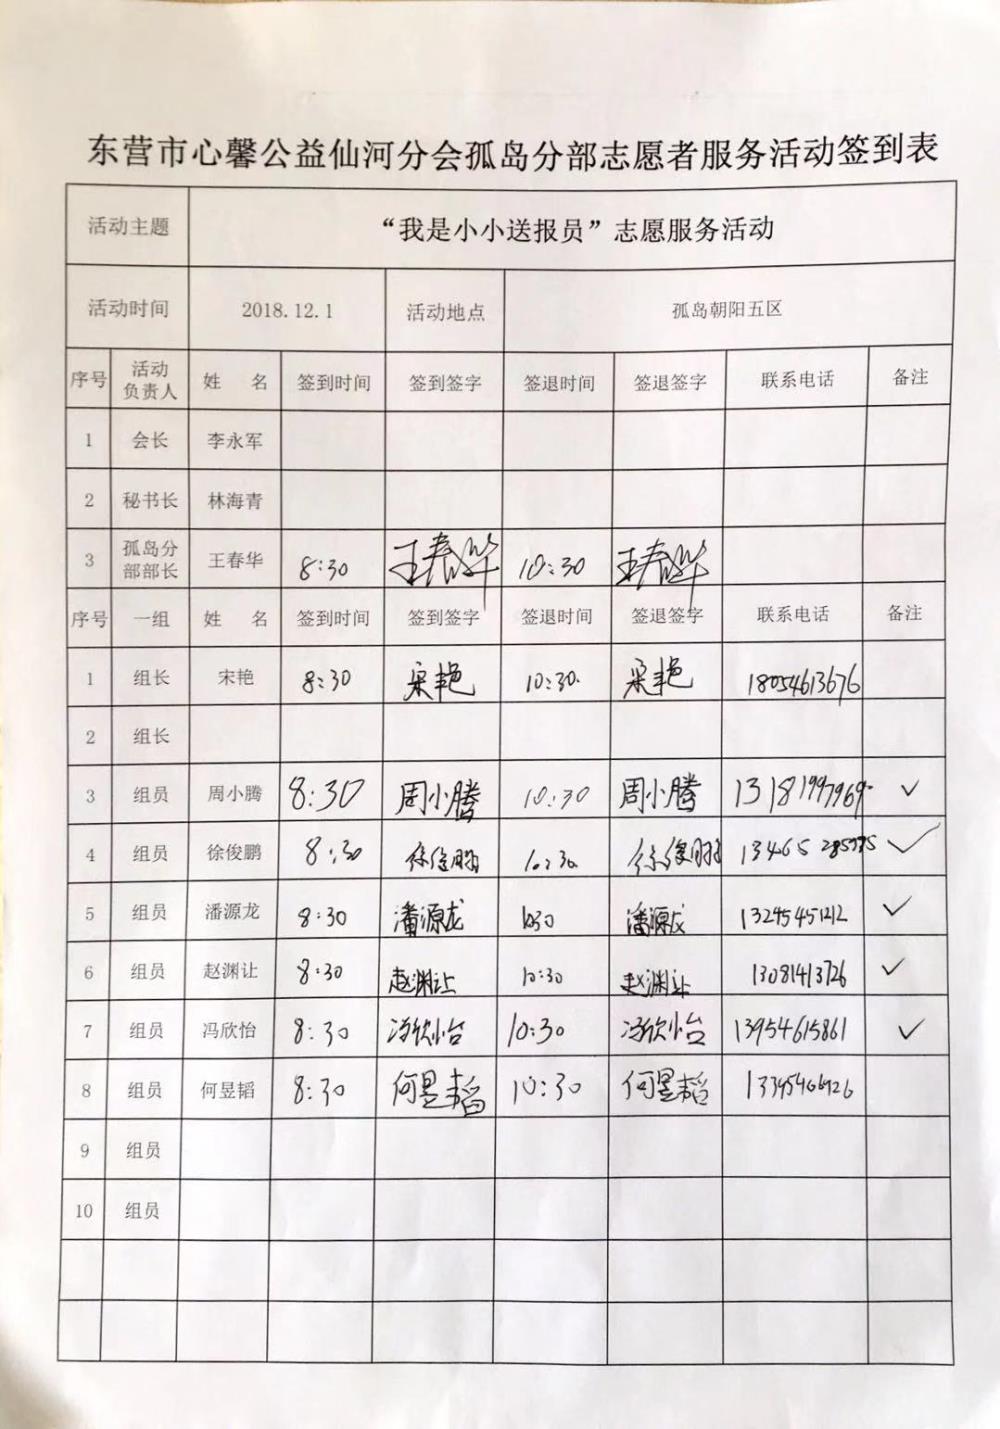 东营市心馨公益仙河分会孤岛分部志愿者服务活动签到表
活动主题 “我是小小送报员”志愿服务活动
活动时间 2018.12.1 活动地点 孤岛朝阳五区
序号 活动负责人 姓 名 签到时间 签到签字 签退时间 签退签字 联系电话 备注
1 会长 李永军
2 秘书长 林海青
3 孤岛分部部长 王春华 8:30 王春华 10:30 王春华
序号 一组 姓 名 签到时间 签到签字 签退时间 签退签字 联系电话 备注
1 组长 宋艳 8:30 宋艳 10:30. 宋艳 18054613676
2 组长
3 组员 周小腾 8:30 周小腾 10:30 周小腾 13181997969 ✓
4 组员 徐俊鹏 8:30 徐俊鹏 10:30 徐俊鹏 ✓
5 组员 潘源龙 8:30 潘源龙 1030 潘源龙 13245451212 ✓
6 组员 赵渊让 8:30 赵渊让 10:30 赵渊让 13081413726 ✓
7 组员 冯欣怡 8:30 冯欣怡 10:30 冯欣怡 13954615861 ✓
8 组员 何昱韬 8:30 何昱韬 10:30 何昱韬
9 组员
10 组员